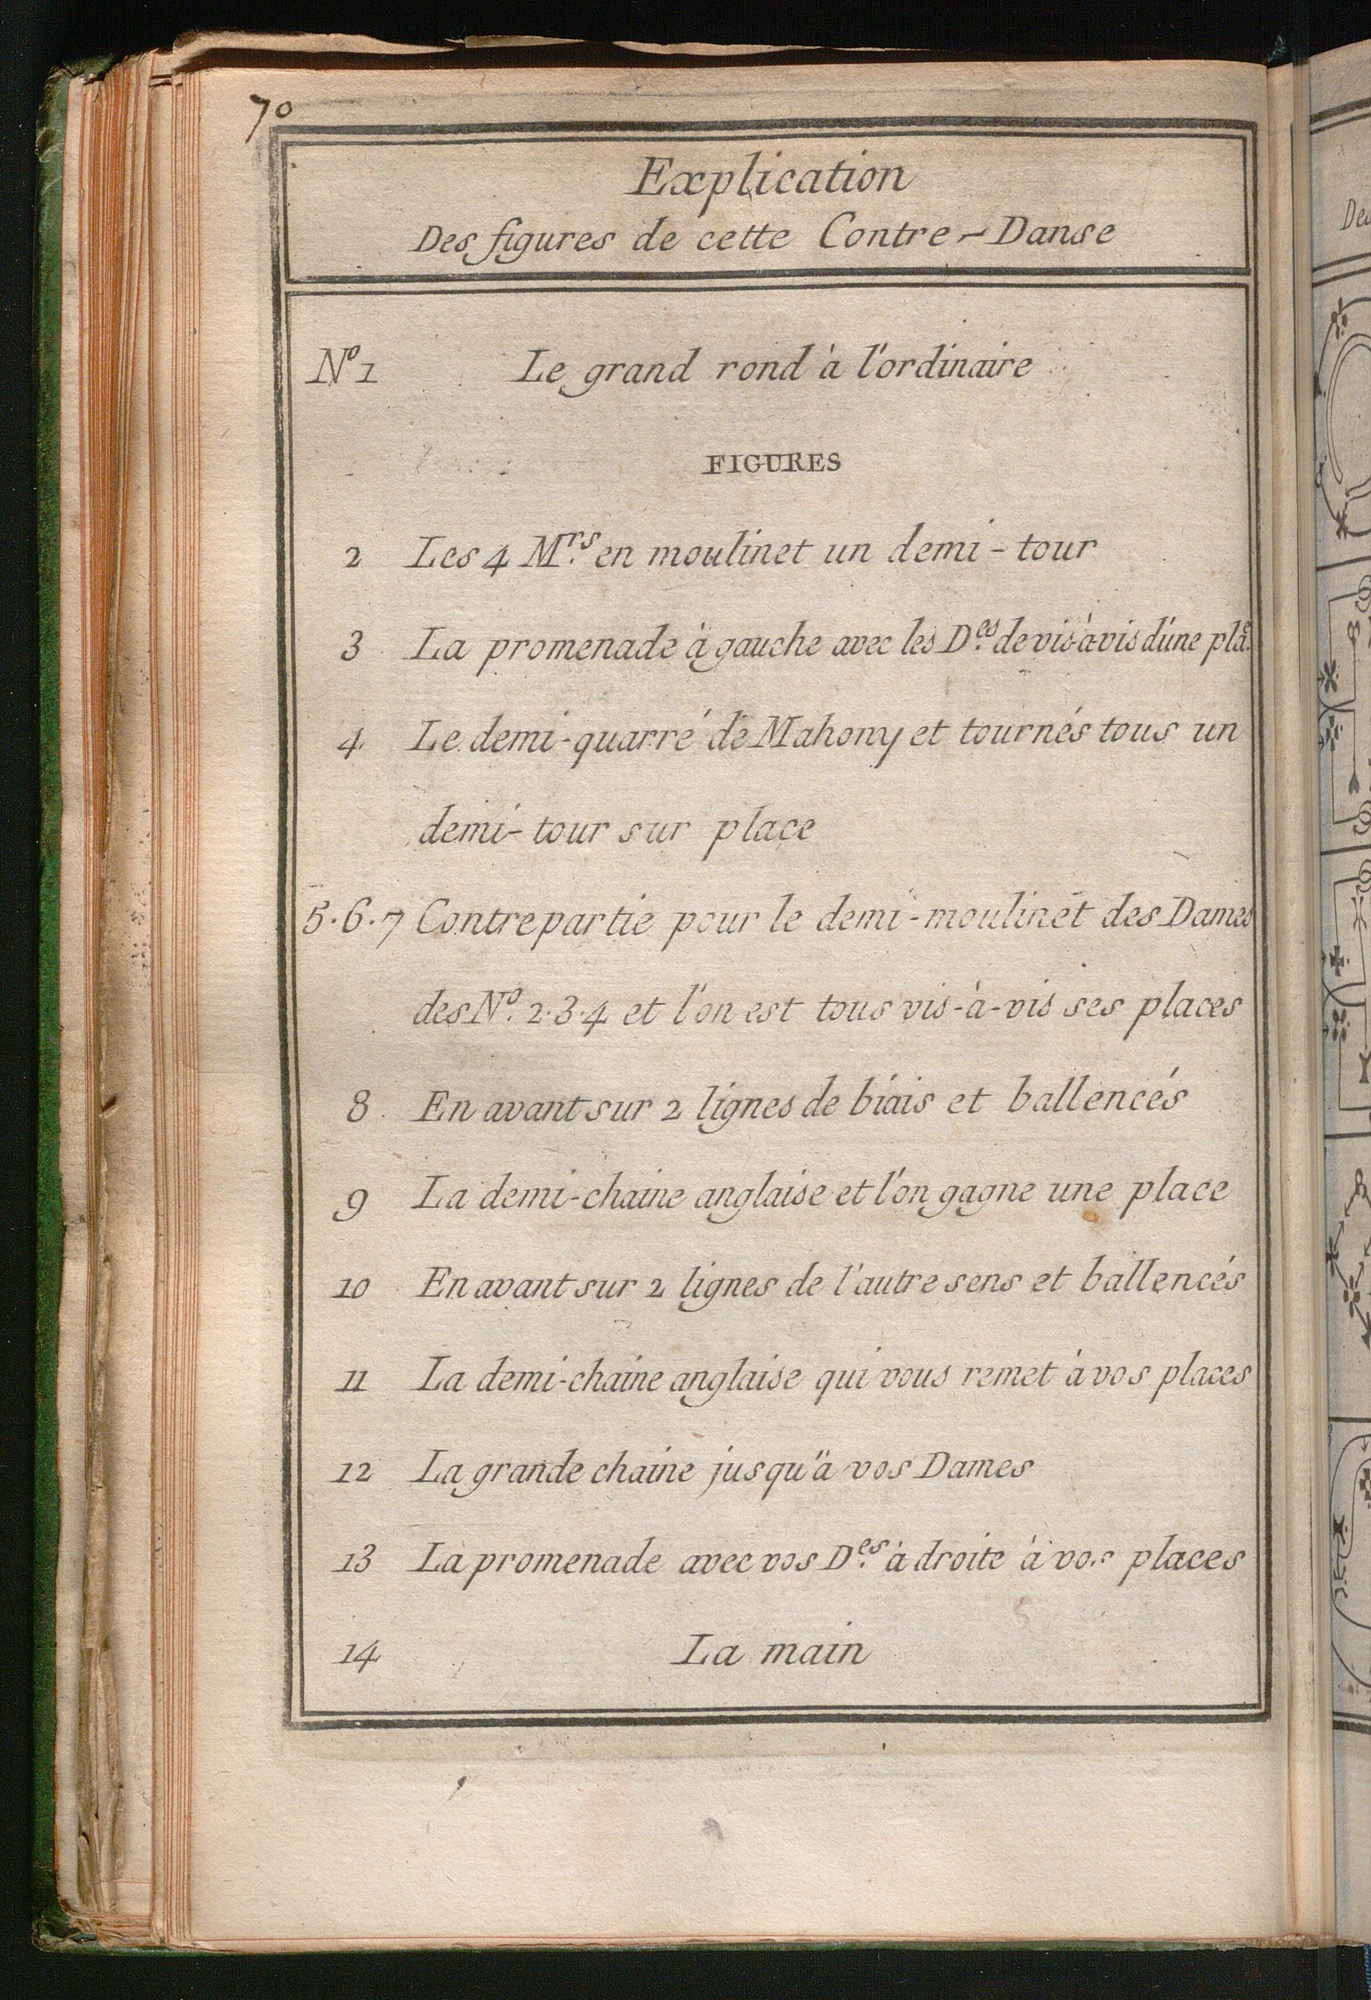 70
Explication
Des figures de cette Contre-Danse
N.º 1 Le grand rond à l'ordinaire
FIGURES
2 Les 4 M.rs en moulinet un demi-tour
3 La promenade à gauche avec les D.es de vis-à-vis d'une pla.e
4 Le demi-quarré de Mahony et tournés tous un
demi-tour sur place
5.6.7 Contrepartie pour le demi-moulinet des Dames
des N.º 2.3.4 et l'on est tous vis-à-vis ses places
8 En avant sur 2 lignes de biais et ballencés
9 La demi-chaine anglaise et l'on gagne une place
10 En avant sur 2 lignes de l'autre sens et ballencés
11 La demi-chaine anglaise qui vous remet à vos places
12 La grande chaine jusqu'à vos Dames
13 La promenade avec vos D.es à droite à vos places
14 La main
De